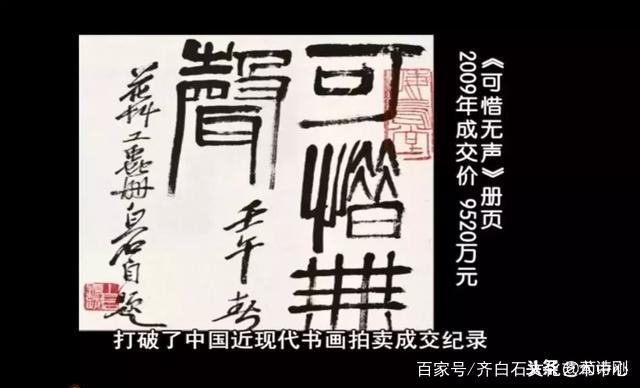 《可惜无声》册页
2009年成交价 9520万元
可惜無
聲
壬午春
花艸工蟲冊白石自題
打破了中国近现代书画拍卖成交纪录
百家号/齐白石艺术中心
头条